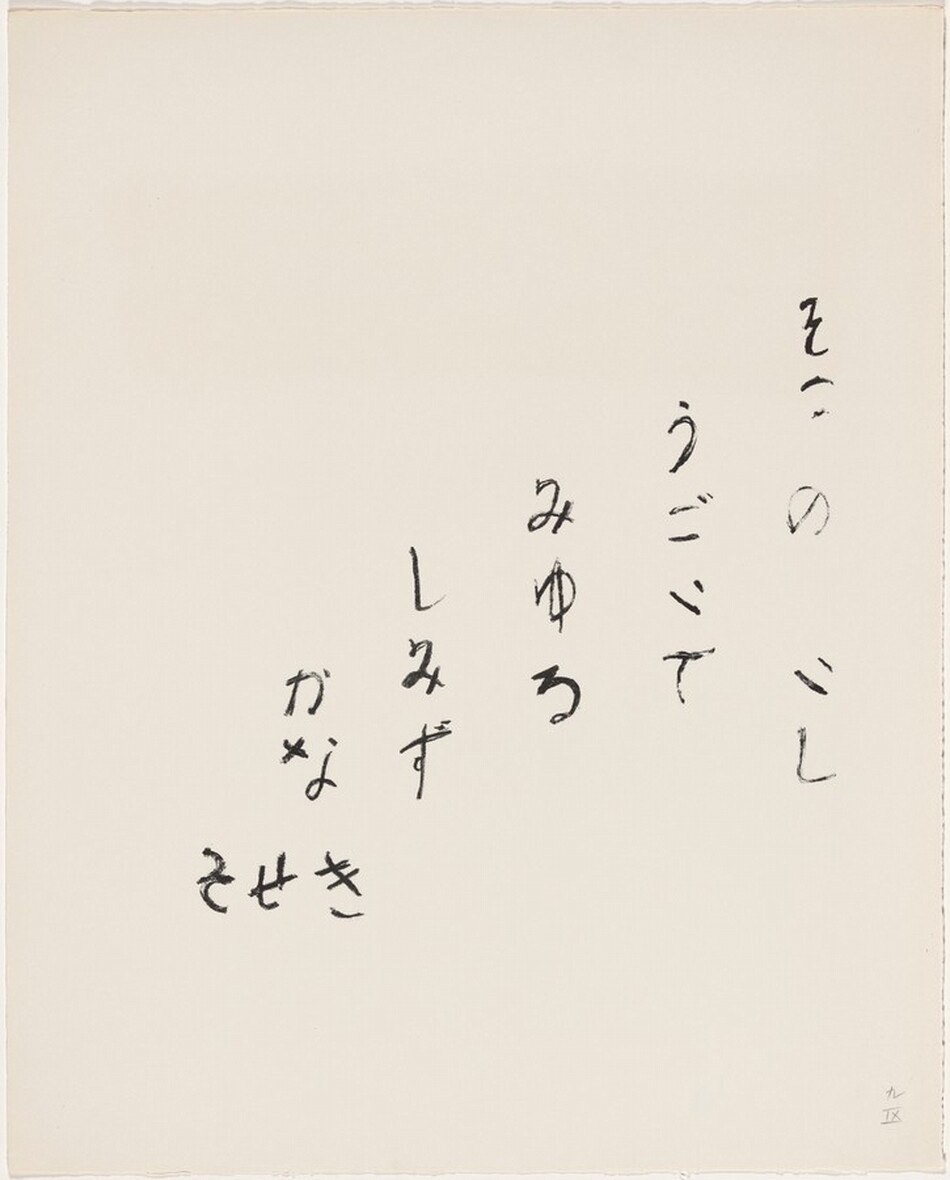 そこのいし
うごいて
みゆる
しみず
かな
そせき
九
IX